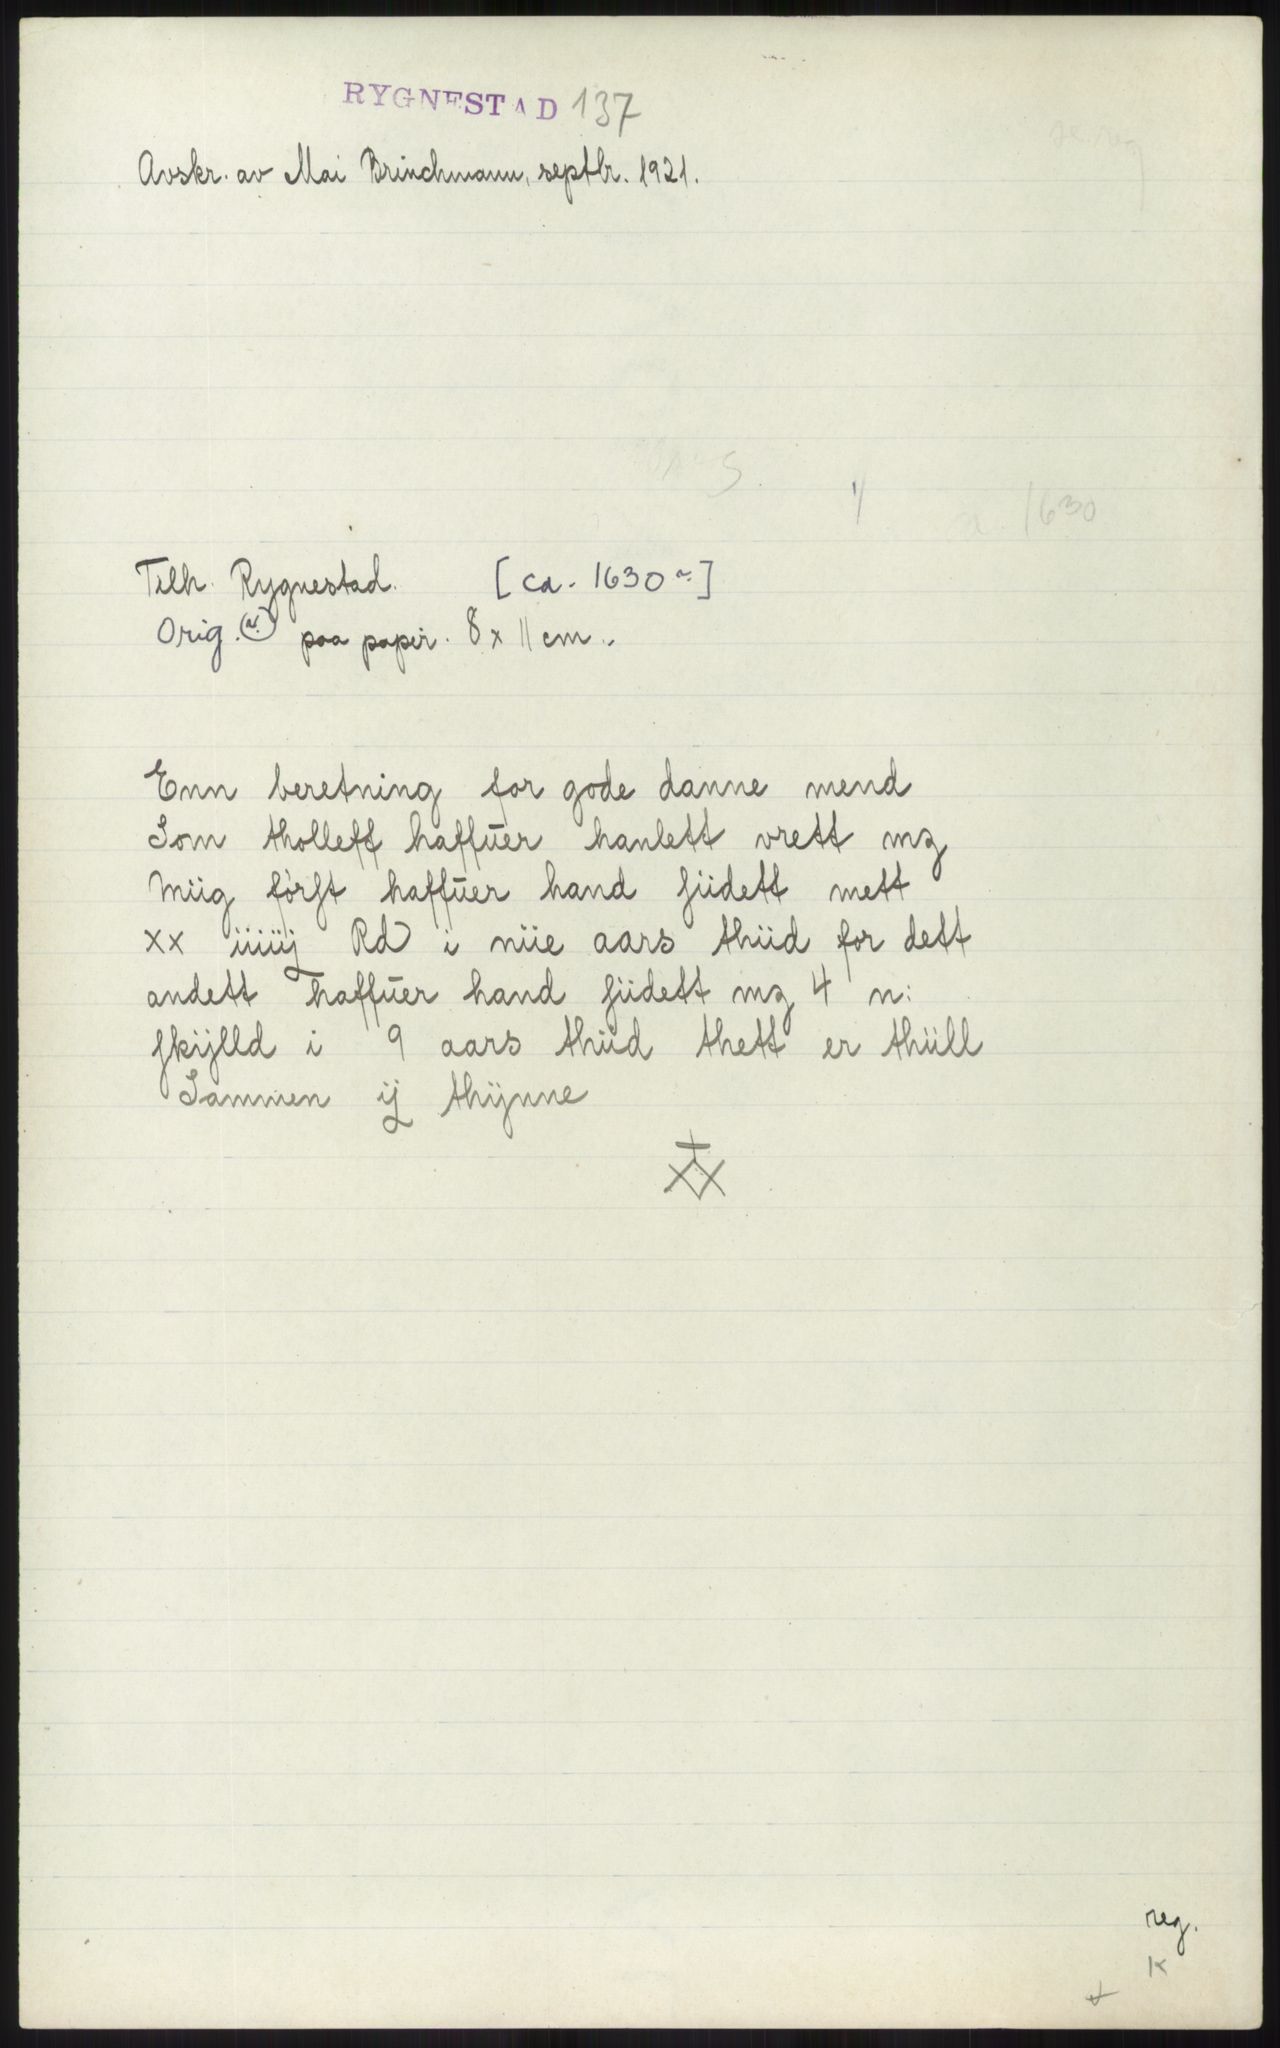 RYGNESTAD 137
Avskr. av Mai Brinchmann, septbr. 1921.
1630
Tilh. Rygnestad. [ca. 1630]
Orig. paa papir. 8 x 11 cm.
Enn beretning for gode danne mend
Som tholleff haffuer hanlett vrett mz
Miig førſt haffuer hand ſiidett mett
xx iiiiij Rd i niie aars thiid for dett
andett haffuer hand ſiidett mz 4 n:
ſkijlld i 9 aars thiid thett er thiill
Sammen ij thijnne
reg.
K